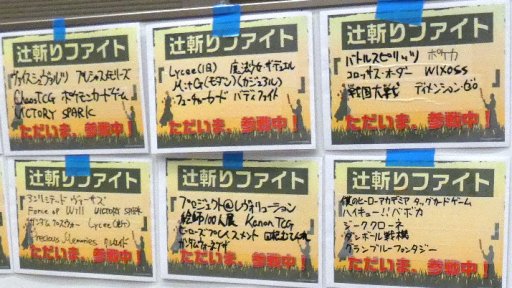 辻斬りファイト
ヴァイスシュヴァルツ プレシャスメモリーズ
ChaosTCG ポケモンカードゲーム
VICTORY SPARK
ただいま、参戦中!
辻斬りファイト
Lycee(旧)
M:tG(モダン)(カジュアル)
フューチャーカード バディファイト
ただいま、参戦中!
辻斬りファイト
バトルスピリッツ ポケカ
コロッサス・オーダー WIXOSS
戦国大戦 ディメンション・ゼロ
ただいま、参戦中!
辻斬りファイト
アンリミテッド ヴァーサス
Force of Will VICTORY SPARK
ガンダム クロスウォー Lycee
Precious Memories
ただいま、参戦中!
辻斬りファイト
プロジェクトレヴォリューション
絵師100人展 Kanon TCG
ガンダムウォーネグザ
ただいま、参戦中!
辻斬りファイト
僕のヒーローアカデミア ターグカードゲーム
ハイキュー!!バボカ
ジーククローネ
ダンボール戦機
グランブルーファンタジー
ただいま、参戦中!